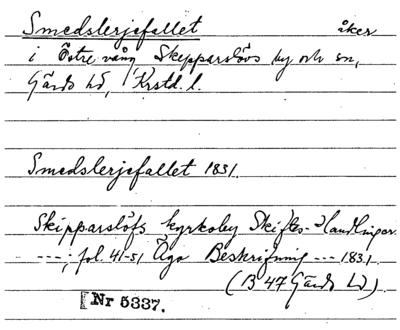 Smedslerjefallet åker
i Östre vång Skepparslövs by och sn,
Gärds hd, Krstd. l.
Smedslerjefallet 1831.
Skipparslöfs kyrkoby Skiftes-Handlingar
---; fol. 41-51 Ägo Beskrifning --- 1831.
(B 47 Gärds hd)
Nr 5337.